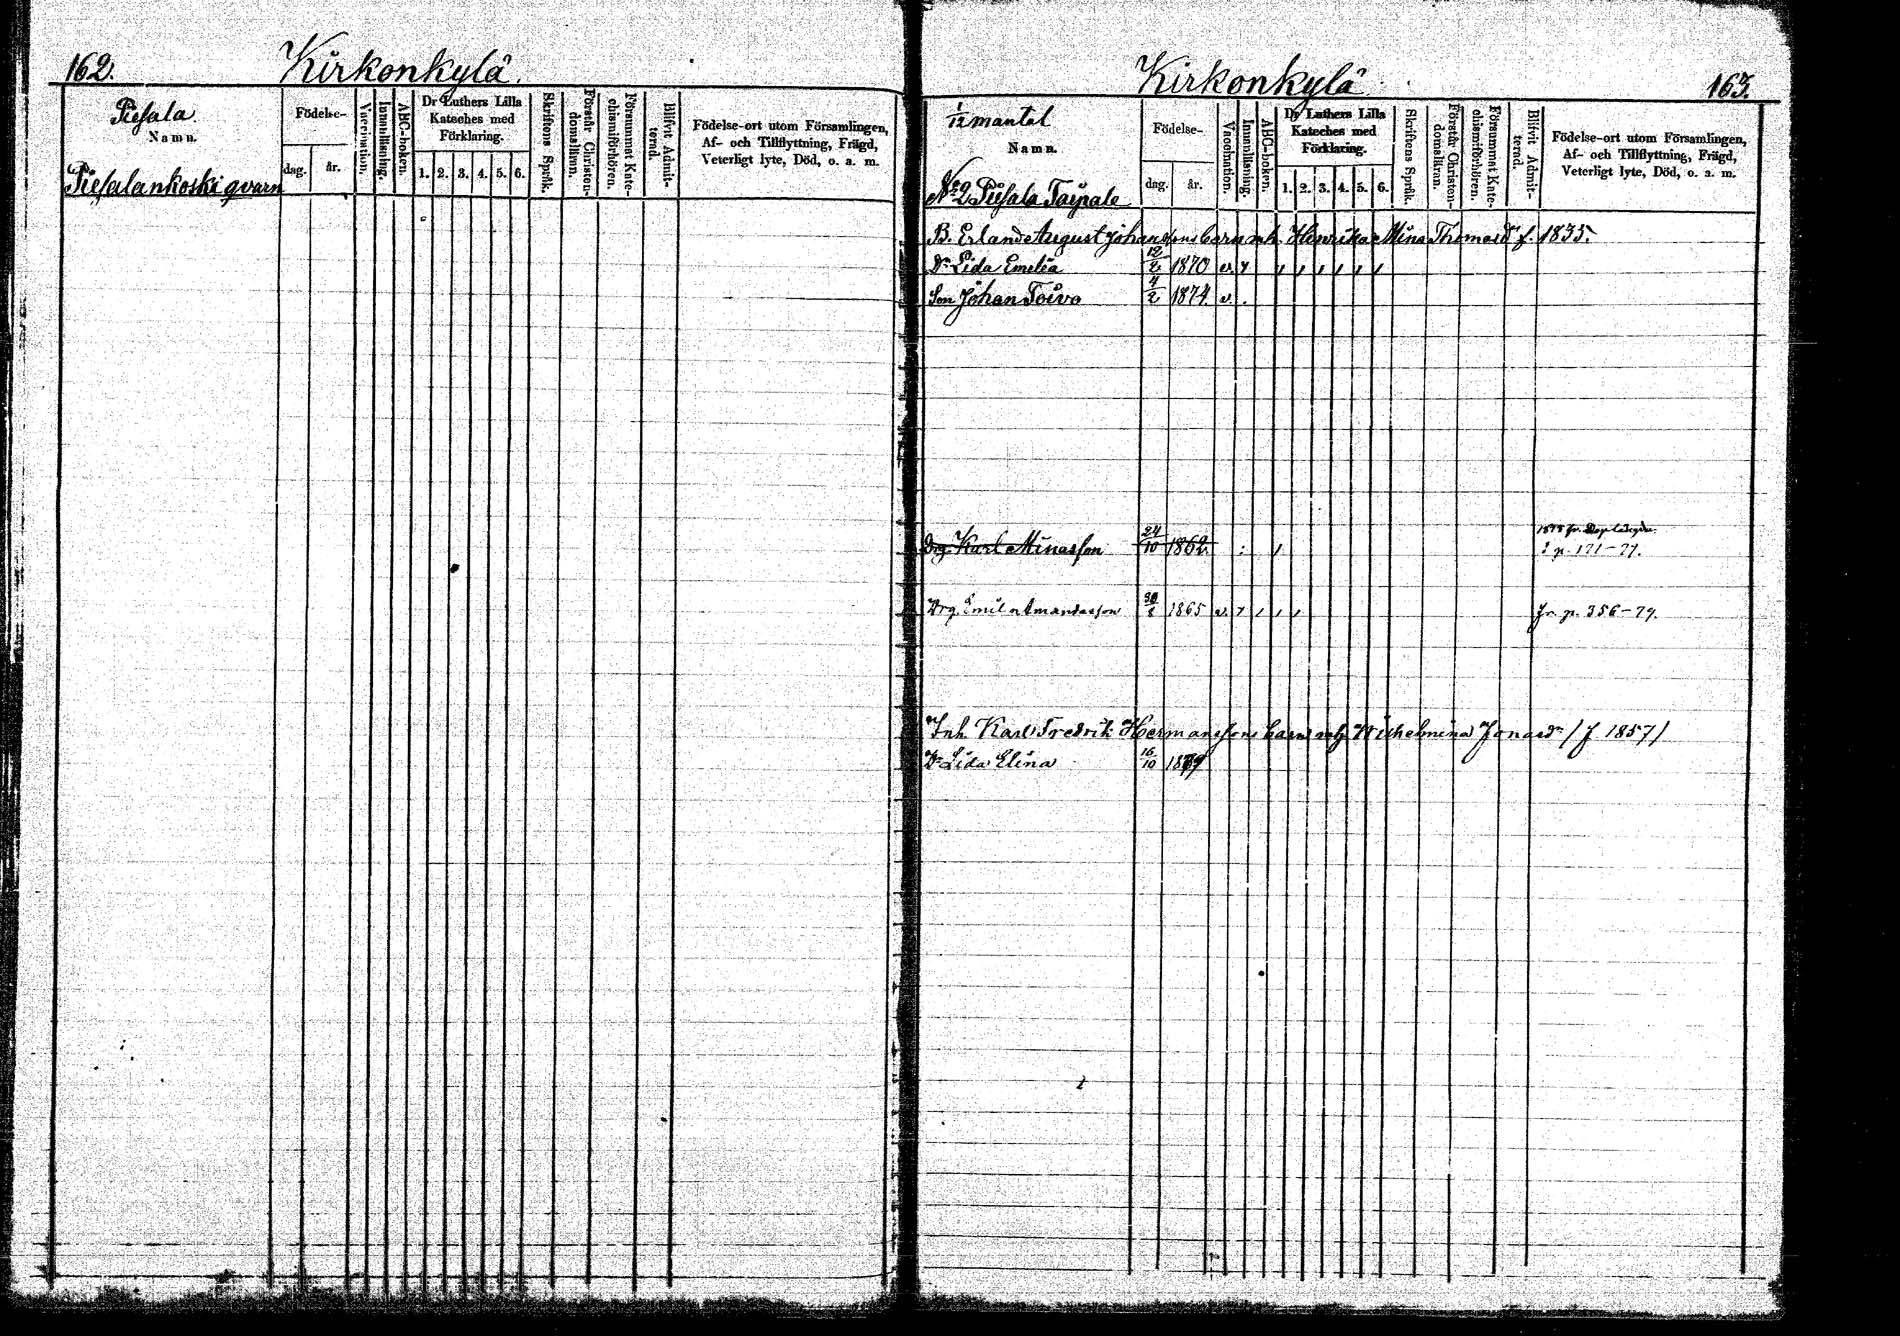 162.
Kirkonkylä.
Piesala.
Namn.
Födelse-
dag.
år.
Vaccination.
Innanläsning.
ABC-boken.
Dr Luthers Lilla
Kateches med
Förklaring.
1. 2. 3. 4. 5. 6.
Skriftens Språk.
Förstår Christen-
domsläran.
Försummat Kate-
chismiförhören.
Blifvit Admit-
terad.
Födelse-ort utom Församlingen,
Af- och Tillflyttning, Frägd,
Veterligt lyte, Död, o. a. m.
Piesalankoski qvarn
Kirkonkylä
163.
1/12 mantal
Namn.
Födelse-
dag.
år.
Vaccination.
Innanläsning.
ABC-boken.
Dr Luthers Lilla
Kateches med
Förklaring.
1. 2. 3. 4. 5. 6.
Skriftens Språk.
Förstår Christen-
domsläran.
Försummat Kate-
chismiförhören.
Blifvit Admit-
terad.
Födelse-ort utom Församlingen,
Af- och Tillflyttning, Frägd,
Veterligt lyte, Död, o. a. m.
No 2 Piesala Taipale
B. Erland August Johanssons barn mh. Henrika Mina Thomasd. f. 1835.
Dr Lida Emelia 12/2 1870 v.
Son Johan Toivo 4/2 1874. v.
Drg. Karl Minasson 24/10 1862 1878 fr.
p. 171-77.
Drg. Emil Amandasson 30/8 1865 v. fr. p. 356-79.
Inh. Karl Fredrik Hermanssons barn mh Wilhelmina Jonasdr (f 1857)
Dr Lida Elina 16/10 1879